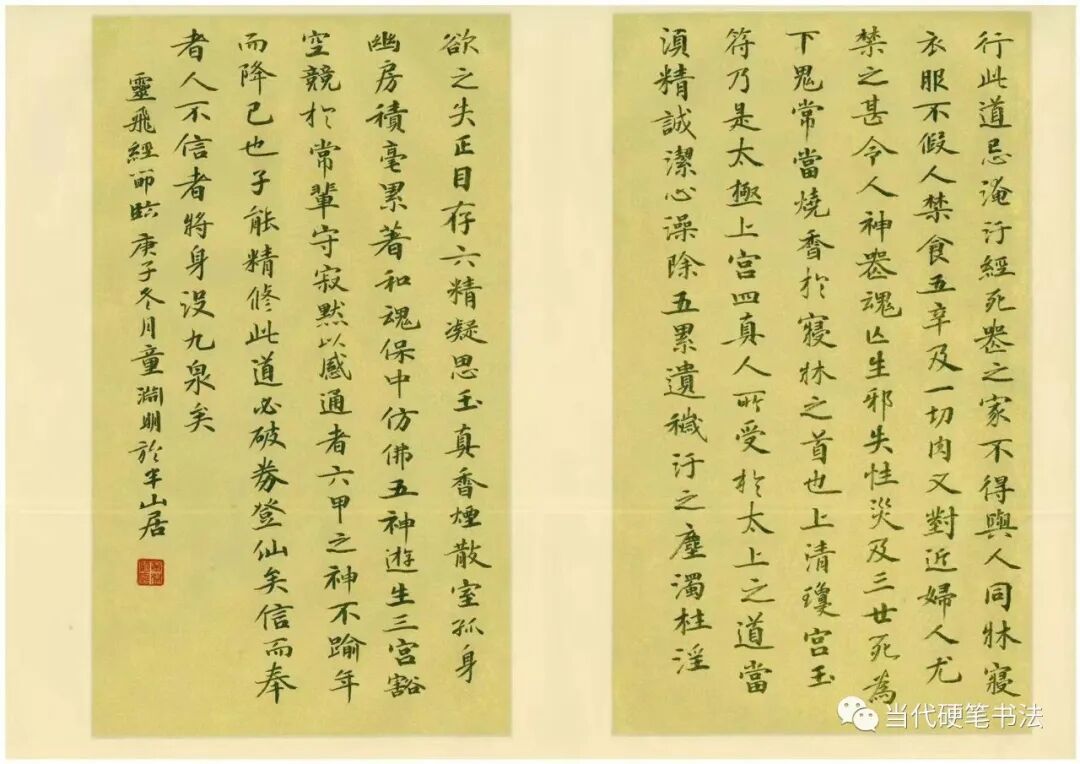 行此道忌淹汙經死喪之家不得與人同牀寢
衣服不假人禁食五辛及一切肉又對近婦人尤
禁之甚令人神喪魂亡生邪失性災及三世死為
下鬼常當燒香於寢牀之首也上清瓊宮玉
符乃是太極上宮四真人所受於太上之道當
湏精誠潔心澡除五累遺穢汙之塵濁杜淫
欲之失正目存六精凝思玉真香煙散室孤身
幽房積毫累著和魂保中仿佛五神遊生三宮豁
空競於常輩守寂默以感通者六甲之神不踰年
而降已也子能精修此道必破券登仙矣信而奉
者人不信者將身沒九泉矣
靈飛經節臨庚子冬月童淵明於半山居
当代硬笔书法